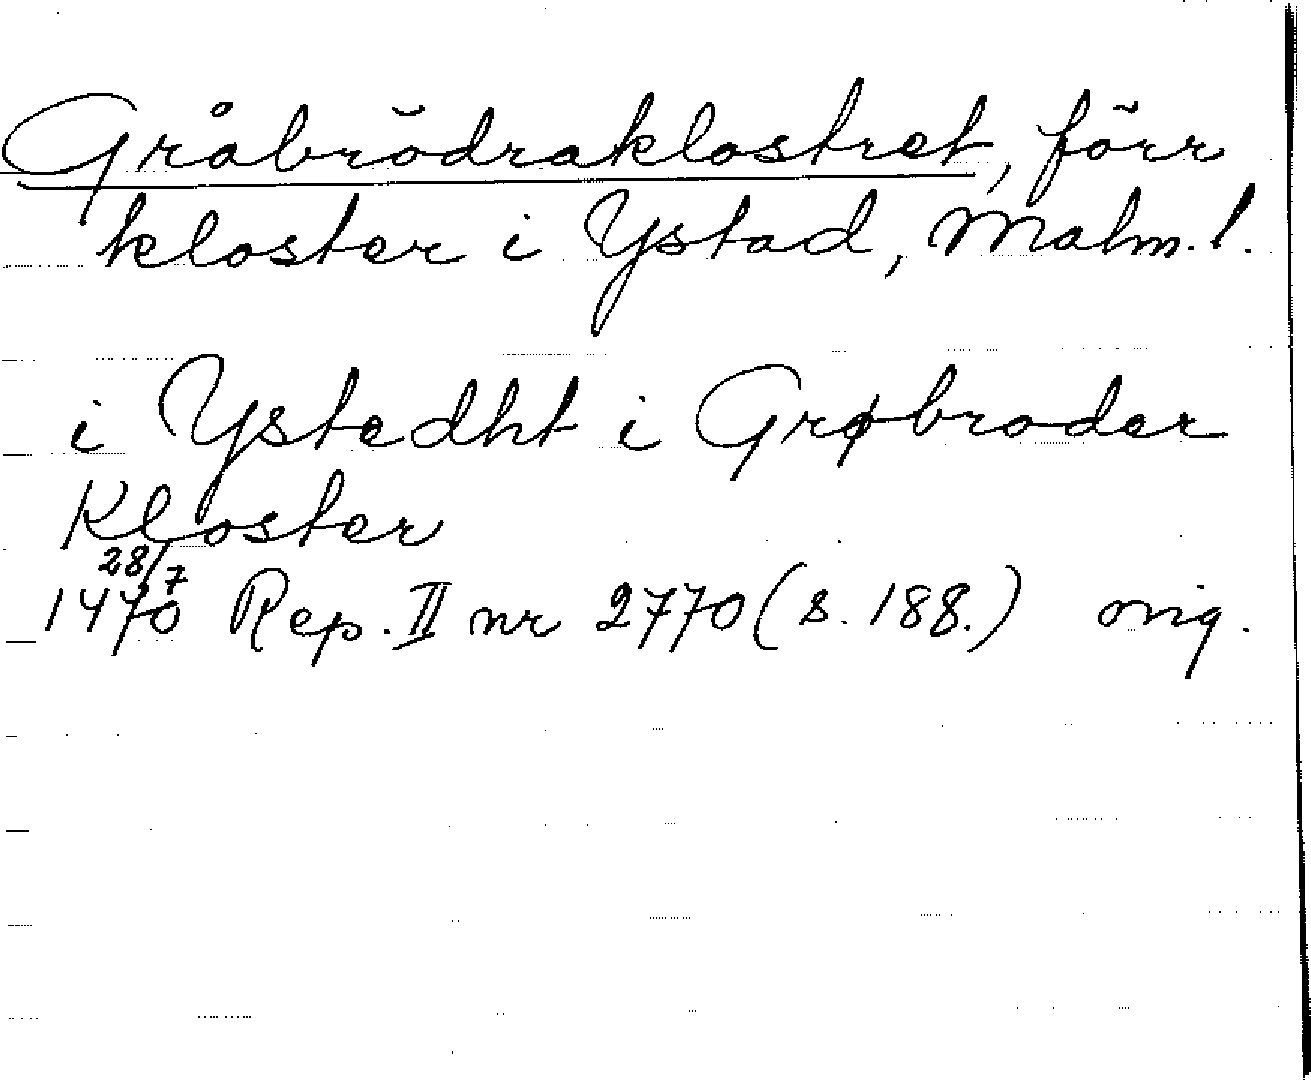 Gråbrödraklostret, förr
kloster i Ystad, Malm. l.
i Ystedht i Grøbroder
Kloster
28/7
1470 Rep. II nr 2770 (s. 188.) orig.